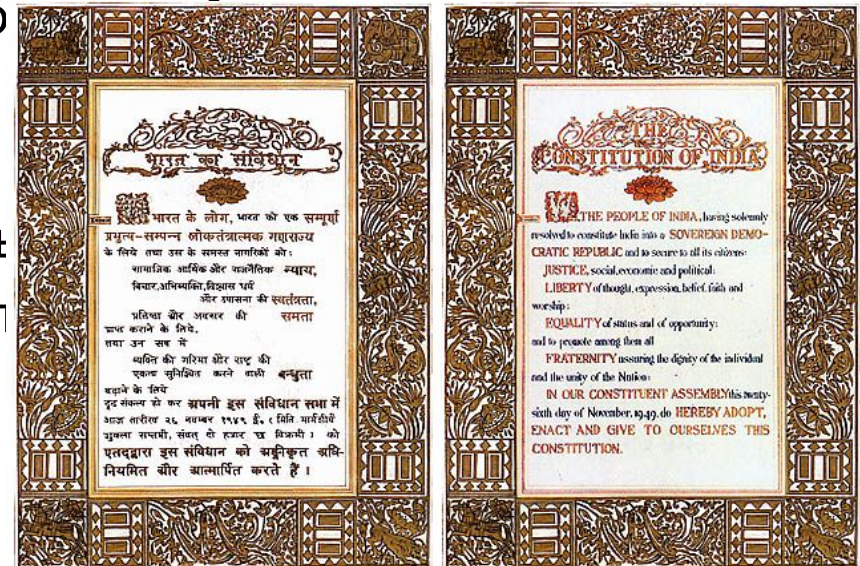 भारत का संविधान
भारत के लोग, भारत को एक सम्पूर्ण
प्रभुत्व-सम्पन्न लोकतंत्रात्मक गणराज्य
के लिये तथा उस के समस्त नागरिकों को:
सामाजिक आर्थिक और राजनैतिक न्याय,
विचार,अभिव्यक्ति,विश्वास धर्म
और उपासना की स्वतंत्रता,
प्रतिष्ठा और अवसर की समता
प्राप्त कराने के लिये,
तथा उन सब में
व्यक्ति की गरिमा और राष्ट्र की
एकता सुनिश्चित करने वाली बन्धुता
बढ़ाने के लिये
दृढ़ संकल्प हो कर अपनी इस संविधान सभा में
आज तारीख २६ नवम्बर १९४९ ई. (मिति मार्गशीर्ष
शुक्ला सप्तमी, संवत् दो हजार छ विक्रमी) को
एतद्द्वारा इस संविधान को अङ्गीकृत अधि-
नियमित और आत्मार्पित करते हैं ।
THE
CONSTITUTION OF INDIA
WE, THE PEOPLE OF INDIA, having solemnly
resolved to constitute India into a SOVEREIGN DEMO-
CRATIC REPUBLIC and to secure to all its citizens:
JUSTICE, social, economic and political;
LIBERTY of thought, expression, belief, faith and
worship;
EQUALITY of status and of opportunity;
and to promote among them all
FRATERNITY assuring the dignity of the individual
and the unity of the Nation;
IN OUR CONSTITUENT ASSEMBLY this twenty-
sixth day of November, 1949, do HEREBY ADOPT,
ENACT AND GIVE TO OURSELVES THIS
CONSTITUTION.